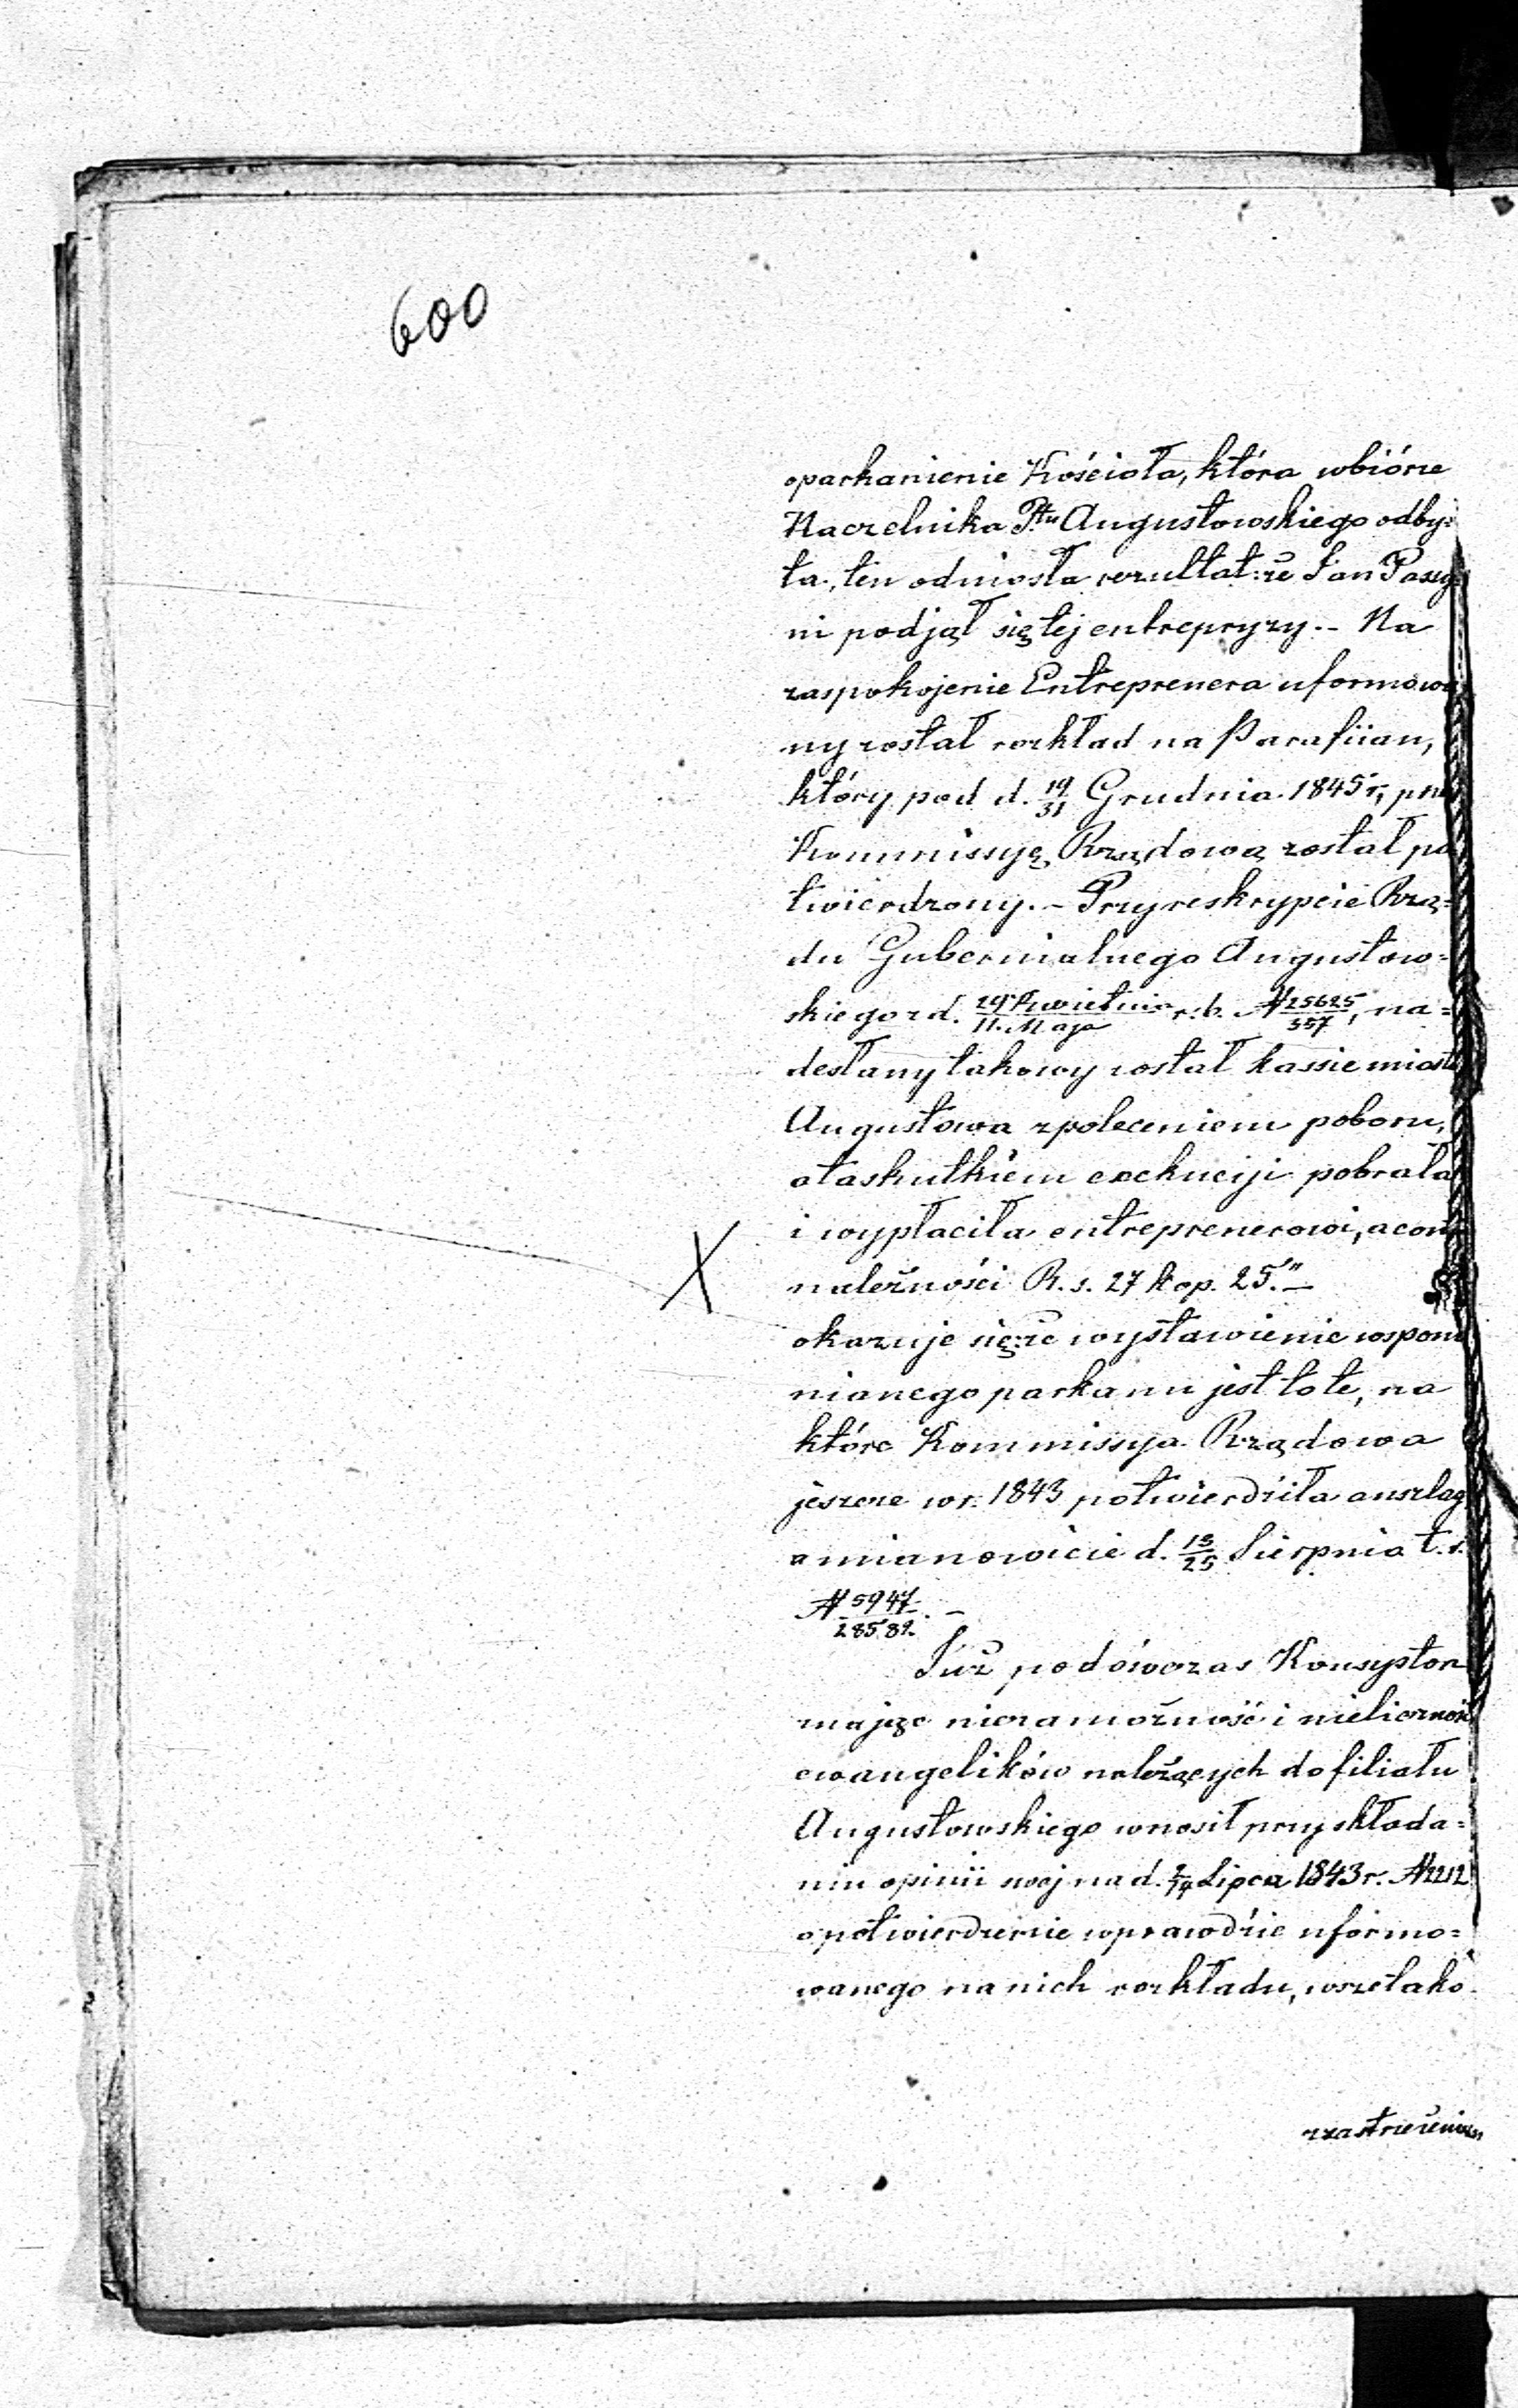 600
oparkanienie Kościoła, która w biórze
Naczelnika Ptu Augustowskiego odby=
ła, ten odniosła rezultat: że Jan
ni podjął się tej entrepryzy. - Na
zaspokojenie Entreprenera uformowa
ny został rozkład na Parafiian,
który pod d. 19/31 Grudnia 1845 r,
Kommissyę Rządową został po
twierdzony. - Przy reskrypcie Rzą=
du Gubernialnego Augustow=
skiego z d. 29 Kwietnia/11. Maja r. b. N 25625/357, na=
desłany takowy został kassie miasta
Augustowa z poleceniem poboru,
a ta skutkiem exekucyi pobrała
i wypłaciła entreprenerowi, a conto
należności R. s. 27 kop. 25." -
okazuje się: że wystawienie wspom
nianego parkanu jest to te, na
które Kommissya Rządowa
jeszcze w r. 1843 potwierdziła anszlag
a mianowicie d. 13/25 Sierpnia t. r.
N 5947/28582. -
Już podówczas Konsystorz
mając niezamożność i nieliczność
ewangelików należących do filiału
Augustowskiego wnosił przy składa=
niu opinii swej na d. 2/14 Lipca 1843 r. N 2212
o potwierdzenie wprawdzie uformo=
wanego na nich rozkładu, wszelako
z zastrzeżeniem